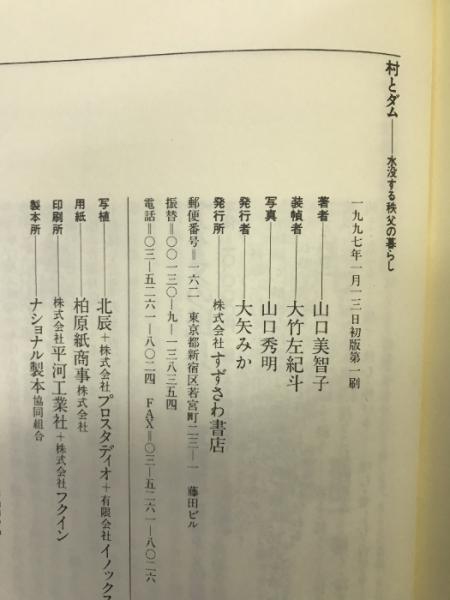 村とダム――水没する秩父の暮らし
一九九七年一月一三日初版第一刷
著者――山口美智子
装幀者――大竹左紀斗
写真――山口秀明
発行者――大矢みか
発行所――株式会社すずさわ書店
郵便番号=一六二 東京都新宿区若宮町二三―一 藤田ビル
振替=〇〇一三〇―九―一三八三五四
電話=〇三―五二六一―八〇二四 FAX=〇三―五二六一―八〇二六
写植――北辰+株式会社プロスタディオ+有限会社イノックス
用紙――柏原紙商事株式会社
印刷所――株式会社平河工業社+株式会社フクイン
製本所――ナショナル製本協同組合